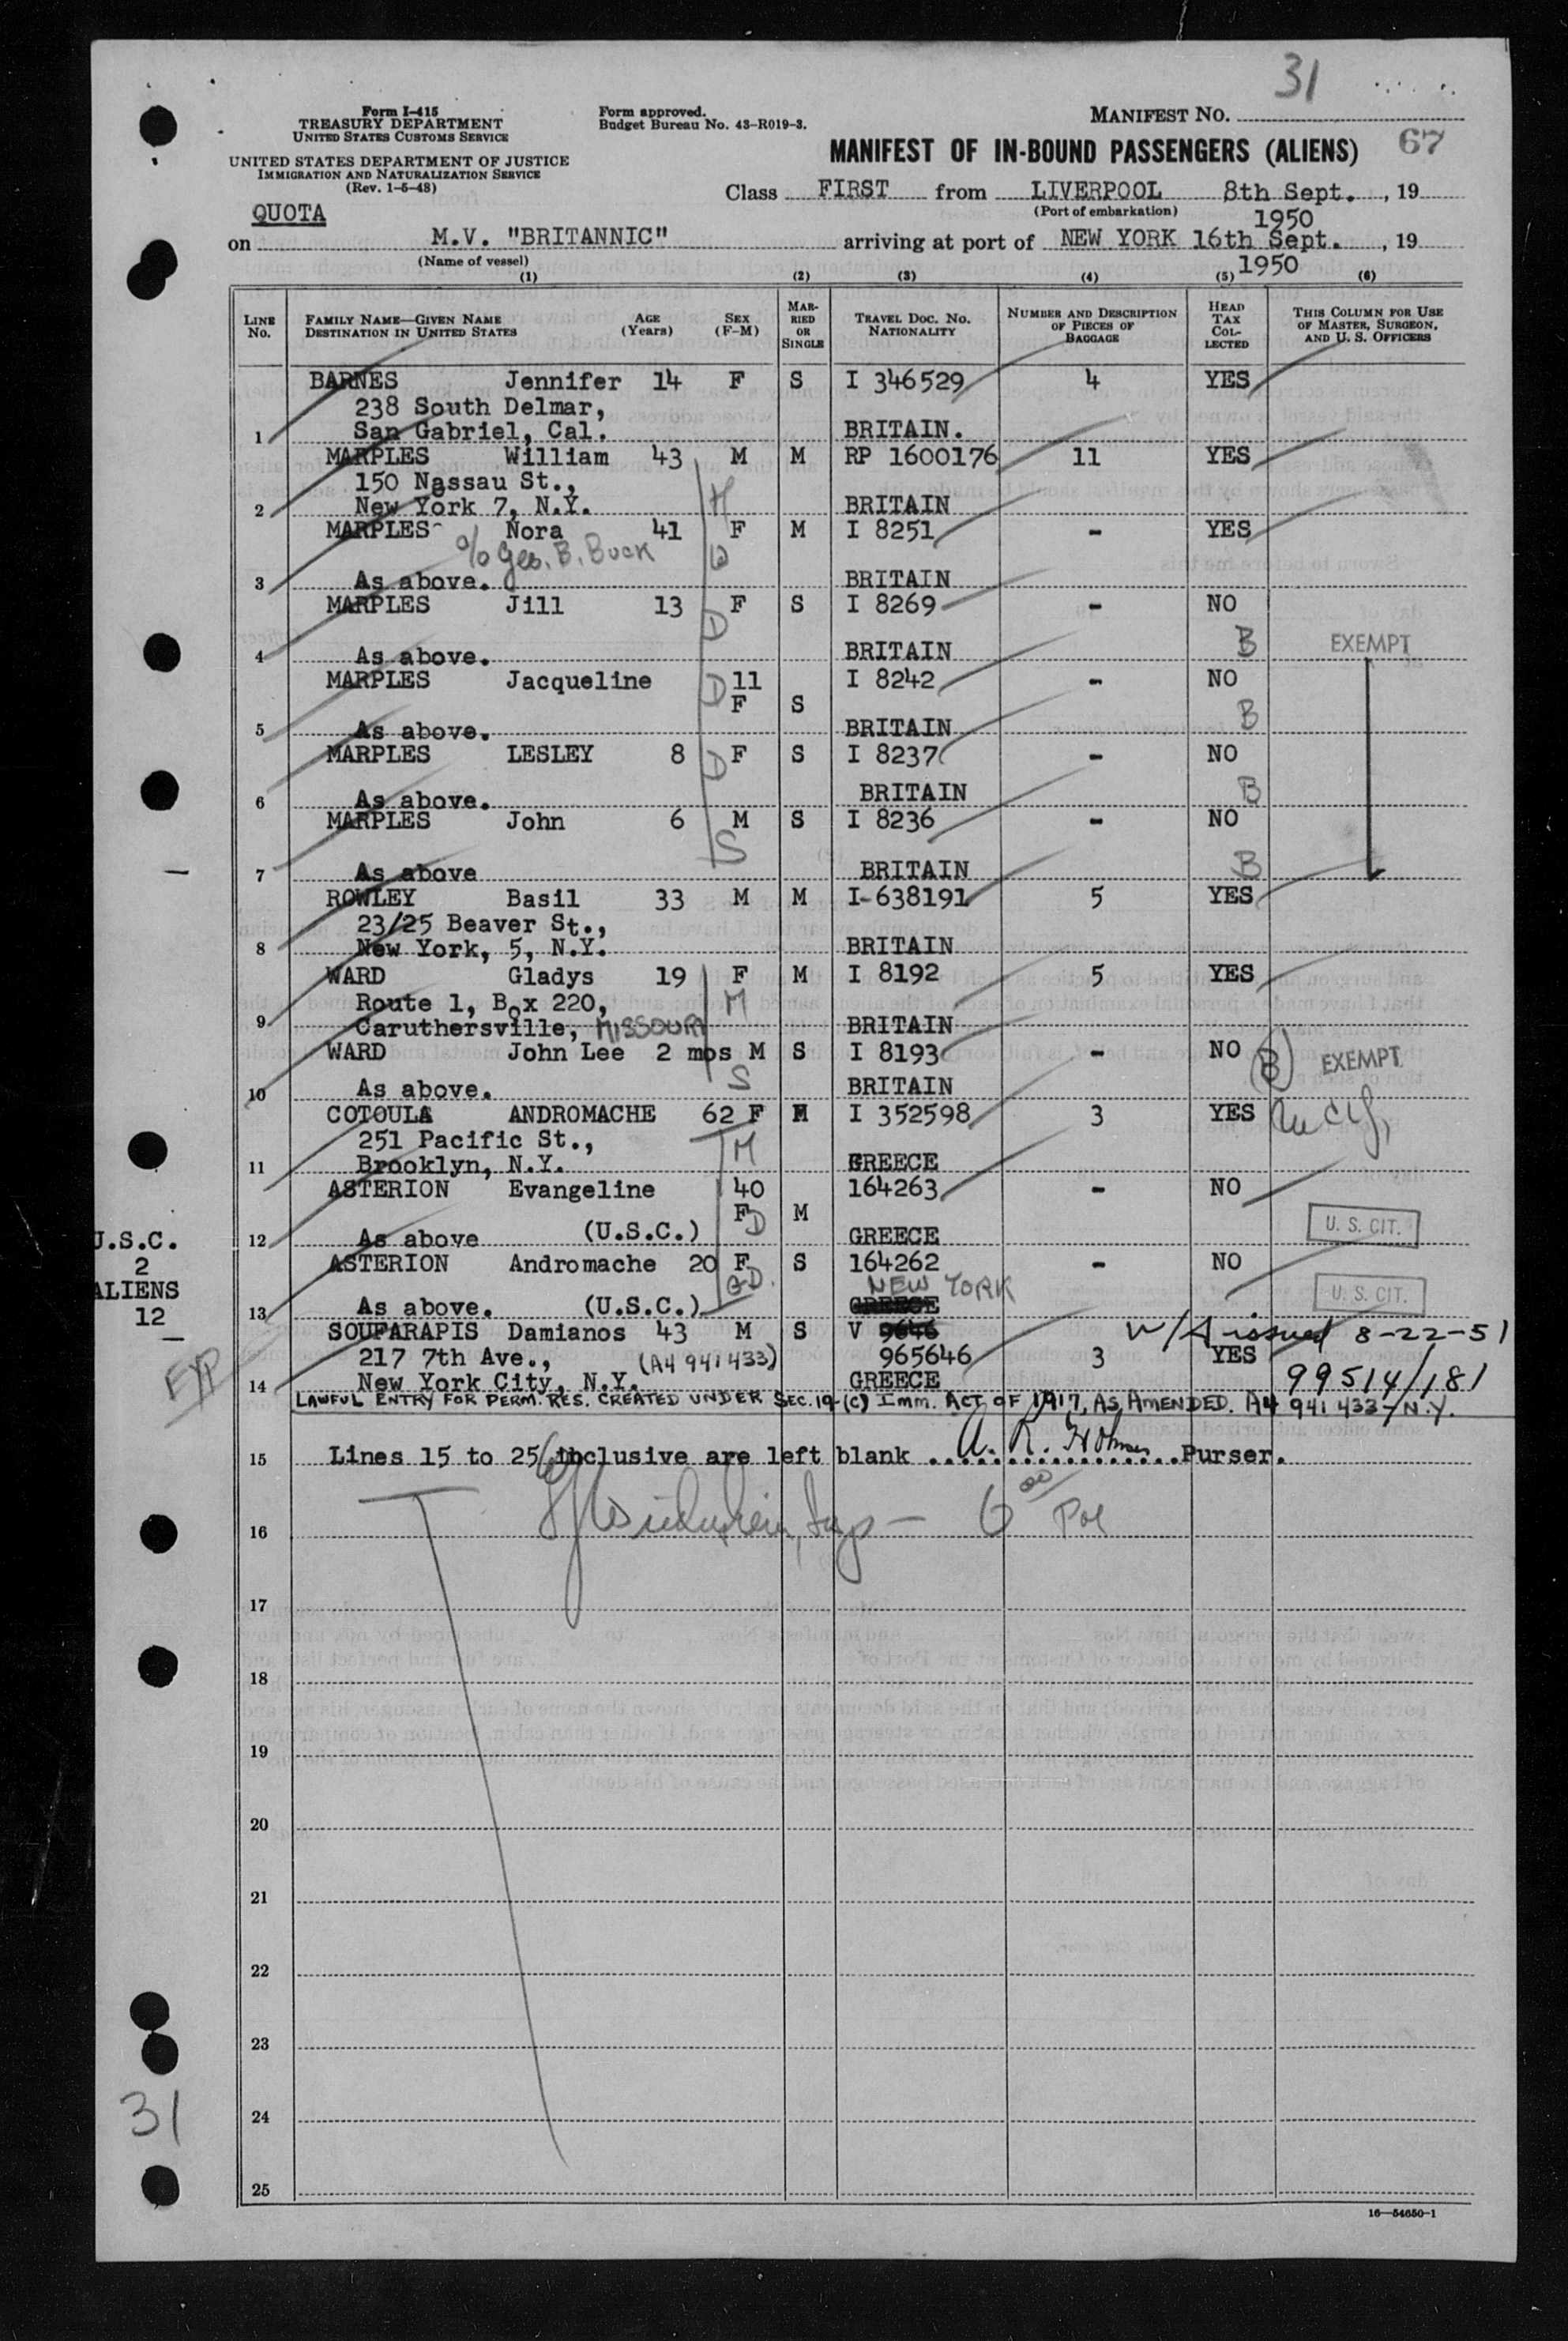 31
Form I-415
TREASURY DEPARTMENT
UNITED STATES CUSTOMS SERVICE
UNITED STATES DEPARTMENT OF JUSTICE
IMMIGRATION AND NATURALIZATION SERVICE
(Rev. 1-5-48)
Form approved.
Budget Bureau No. 43-R019-3.
MANIFEST NO.
MANIFEST OF IN-BOUND PASSENGERS (ALIENS) 67
Class FIRST from LIVERPOOL 8th Sept., 19
(Port of embarkation) 1950
QUOTA
on M.V. "BRITANNIC" arriving at port of NEW YORK 16th Sept., 19
(Name of vessel) 1950
(1) (2) (3) (4) (5) (6)
LINE No. FAMILY NAME—GIVEN NAME DESTINATION IN UNITED STATES AGE (Years) SEX (F-M) MARRIED OR SINGLE TRAVEL DOC. NO. NATIONALITY NUMBER AND DESCRIPTION OF PIECES OF BAGGAGE HEAD TAX COLLECTED THIS COLUMN FOR USE OF MASTER, SURGEON, AND U. S. OFFICERS
BARNES Jennifer 14 F S I 346529 4 YES
238 South Delmar,
1 San Gabriel, Cal. BRITAIN.
MARPLES William 43 M M RP 1600176 11 YES
150 Nassau St., H
2 New York 7, N.Y. BRITAIN
MARPLES Nora 41 F M I 8251 - YES
c/o Geo. B. Buck W
3 As above. BRITAIN
MARPLES Jill 13 F S I 8269 - NO
D B EXEMPT
4 As above. BRITAIN
MARPLES Jacqueline D 11 I 8242 - NO
F S B
5 As above. BRITAIN
MARPLES LESLEY 8 D F S I 8237 - NO
6 As above. BRITAIN B
MARPLES John 6 M S I 8236 - NO
S
7 As above BRITAIN B
ROWLEY Basil 33 M M I-638191 5 YES
23/25 Beaver St.,
8 New York, 5, N.Y. BRITAIN
WARD Gladys 19 F M I 8192 5 YES
Route 1, Box 220, M
9 Caruthersville, MISSOURI BRITAIN
WARD John Lee 2 mos M S I 8193 - NO (B) EXEMPT
S
10 As above. BRITAIN
COTOULA ANDROMACHE 62 F M I 352598 3 YES
251 Pacific St., M
11 Brooklyn, N.Y. GREECE
ASTERION Evangeline 40 164263 - NO
F D M U. S. CIT.
12 As above (U.S.C.) GREECE
ASTERION Andromache 20 F S 164262 - NO
GD. NEW YORK U. S. CIT.
13 As above. (U.S.C.) GREECE
U.S.C.
2
ALIENS
12
SOUFARAPIS Damianos 43 M S V 9646 W/A issued 8-22-51
217 7th Ave., (A4 941433) 965646 3 YES
14 New York City, N.Y. GREECE 99514/181
LAWFUL ENTRY FOR PERM. RES. CREATED UNDER SEC. 19-(C) Imm. ACT OF 1917, AS AMENDED. A4 941 433-N.Y.
15 Lines 15 to 25 inclusive are left blank A. R. Holmes Purser.
16
17
18
19
20
21
22
23
24
25
31
16—54650-1